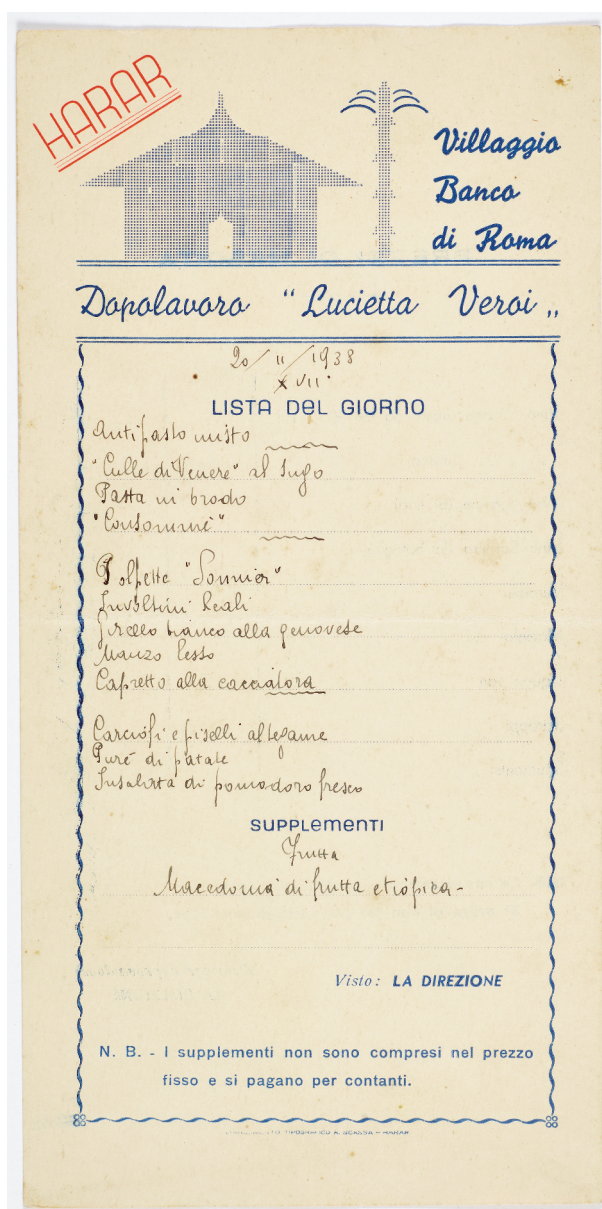 HARAR
Villaggio
Banco
di Roma
Dopolavoro "Lucietta Veroi"
20/11/1938
XVII°
LISTA DEL GIORNO
Antipasto misto
"Culle di Venere" al sugo
Pasta in brodo
"Consommé"
Polpette
Involtini Reali
Girello bianco alla genovese
Manzo lesso
Capretto alla cacciatora
Carciofi e piselli al tegame
Puré di patate
Insalata di pomodoro fresco
SUPPLEMENTI
Frutta
Macedonia di frutta etiopica -
Visto: LA DIREZIONE
N. B. - I supplementi non sono compresi nel prezzo
fisso e si pagano per contanti.
TIPOGRAFICO A. SCASSA - HARAR